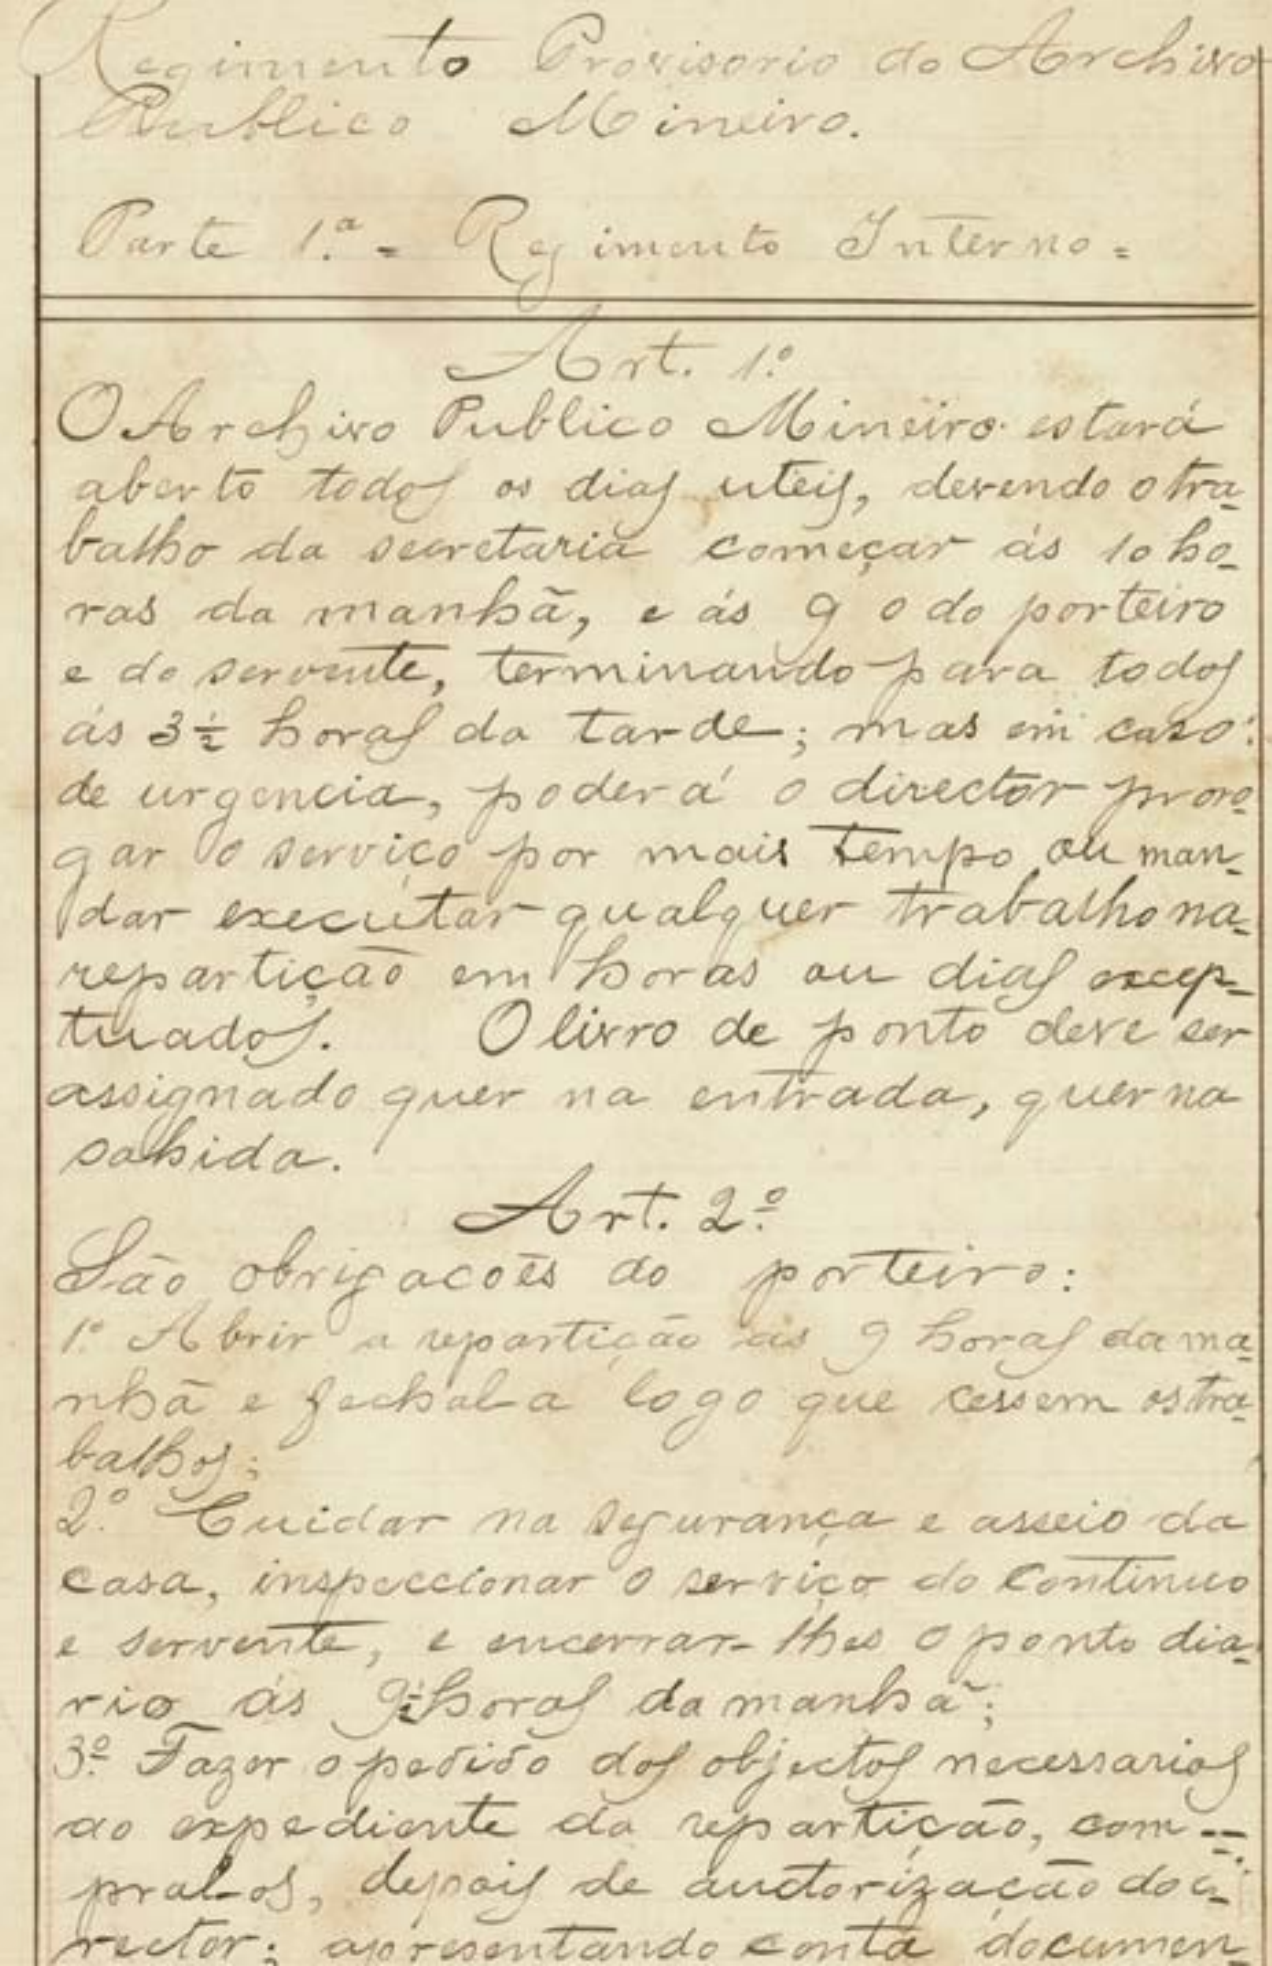 Regimento Provisorio do Archivo
Publico Mineiro.
Parte 1.ª = Regimento Interno =
Art. 1º
O Archivo Publico Mineiro estará
aberto todos os dias uteis, devendo o tra-
balho da secretaria começar ás 10 ho-
ras da manhã, e ás 9 o do porteiro
e do servente, terminando para todos
ás 3½ horas da tarde; mas em caso
de urgencia, poderá o director proro-
gar o serviço por mais tempo ou man-
dar executar qualquer trabalho na
repartição em horas ou dias excep-
tuados. O livro de ponto deve ser
assignado quer na entrada, quer na
sahida.
Art. 2º
São obrigacões do porteiro:
1º Abrir a repartição ás 9 horas da ma-
nhã e fechal-a logo que cessem os tra-
balhos;
2º Cuidar na segurança e asseio da
casa, inspeccionar o serviço do Continuo
e servente, e encerrar-lhes o ponto dia-
rio ás 9½ horas da manhã;
3º Fazer o pedido dos objectos necessarios
ao expediente da repartição, com-
pral-os, depois de auctorização do di-
rector; apresentando conta documen-